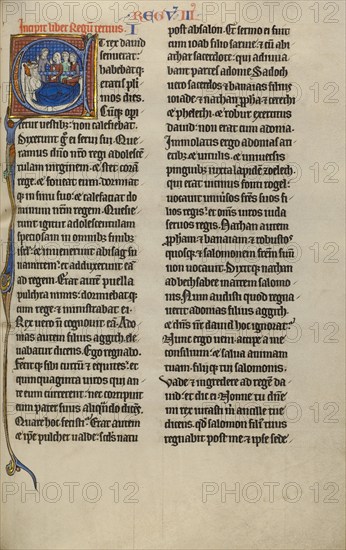 REGV III
Incipit liber Regum tercius. I
T rex david
senuerat:
habebatqȝ
etatis pluri
mos dies.
Cūqȝ opi
retur vestibȝ: non calefiebat.
Dixerunt gͦ ei serui sui. Que
ramus dño nr̄o regi adolescen
tulam uirginem. et stet corā
rege. et foueat eum. dormiat
qȝ in sinu suo. et calefaciat do
minum nr̄m regem. Quesie
runt igitur adolescentulam
speciosam in omnibȝ finibȝ
isrl̄. et inuenerunt abisag su
namitem. et adduxerunt eā
ad regem. Erat autē puella
pulchra nimis. dormiebatqȝ
cum rege. et ministrabat ei.
Rex uero nō cognouit eam. Ado
nias autem filius aggith ele
uabatur dicens. Ego regnabo.
Fecitqȝ sibi currū et equites. et
quinquaginta uiros qui an
te eum currerent. nec corripuit
eum pater suus aliqn̄do dicēs.
Quare hoc fecisti. Erat autem
et ip̄e pulcher ualde. scd̄s natu
post absalon. Et sermo ei fuit
cum ioab filio saruie. et cū abi
athar sacerdote. qui adiuua
bant partes adonie. Sadoch
uero sacerdos. et banaias filius
ioiade. et nathan ꝓpha. et cerethi
et phelethi. et robur exercitus
david: non erat cum adonia.
Immolatis ergo adonias arie
tibȝ et uitulis. et uniuersis
pinguibȝ iuxta lapidē zoelech.
qui erat uicinus fonti rogel:
uocauit uniuersos fr̄es suos fi
lios regis. et om̄s uiros iuda
seruos regis. Nathan autem
ꝓpham. et banaiam. et robustos
quosqȝ. et salomonem fr̄em suū
non uocauit. Dixit itaqȝ nathan
ad bethsabee matrem salomo
nis. Num audisti quod regna
uerit adonias filius aggith.
et dñs nr̄ david hoc ignorat?
Nunc ergo ueni. accipe a me
consilium. et salua animam
tuam. filiiqȝ tui salomonis.
Vade et ingredere ad regē da
uid. et dic ei. Nonne tu dñe
mi rex iurasti m̄ ancille tue
dicens. qd̄ salomon filiꝰ tuus
regnabit post me. et ip̄e sede